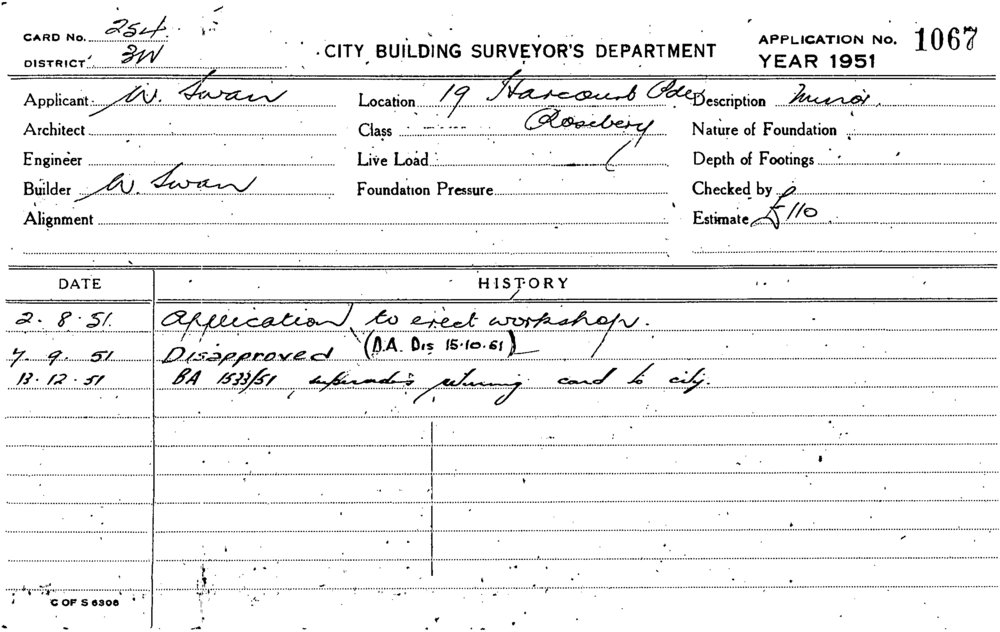 CARD No. 254
DISTRICT 3W
CITY BUILDING SURVEYOR'S DEPARTMENT
APPLICATION No. 1067
YEAR 1951
Applicant W. Swan
Location 19 Harcourt Pde
Description Minor
Architect
Class Rosebery
Nature of Foundation
Engineer
Live Load
Depth of Footings
Builder W. Swan
Foundation Pressure
Checked by
Alignment
Estimate £110
DATE HISTORY
2.8.51. Application to erect workshop.
7.9.51 Disapproved (D.A. Dis 15.10.51)
13.12.51 BA 1533/51 supersedes returning card to city.
C OF S 6306